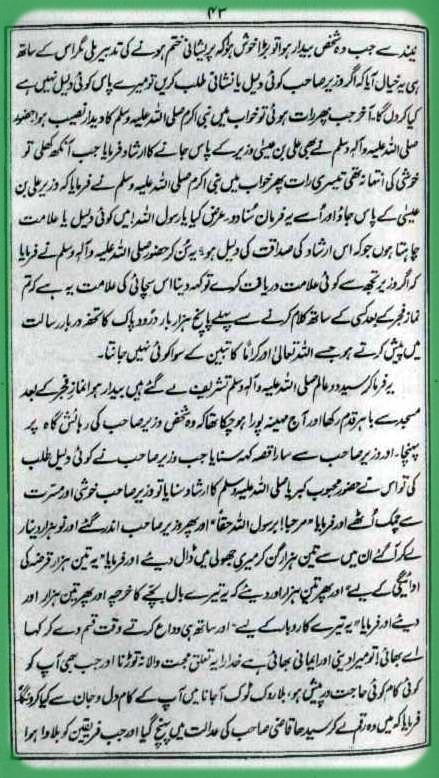 ۴۳
نیند سے جب وہ شخص بیدار ہوا تو بڑا خوش ہوا کہ پریشانی ختم ہونے کی تدبیر ملی مگر اس کے ساتھ
ہی یہ خیال آیا کہ اگر وزیر صاحب کوئی دلیل یا نشانی طلب کریں تو میرے پاس کوئی دلیل نہیں ہے
کیا کروں گا۔ آخر جب پھر رات ہوئی تو خواب میں نبی اکرم صلی اللہ علیہ وسلم کا دیدار نصیب ہوا حضور
صلی اللہ علیہ وآلہ وسلم نے پھر علی بن عیسیٰ وزیر کے پاس جانے کا ارشاد فرمایا جب آنکھ کھلی تو
خوشی کی انتہا نہ تھی تیسری رات پھر خواب میں نبی اکرم صلی اللہ علیہ وسلم نے فرمایا کہ وزیر علی بن
عیسیٰ کے پاس جاؤ اور اُسے یہ فرمان سُنا دو۔ عرض کیا یا رسول اللہ! میں کوئی دلیل یا علامت
چاہتا ہوں جو کہ اس ارشاد کی صداقت کی دلیل ہو، یہ سُن کر حضور صلی اللہ علیہ وآلہ وسلم نے فرمایا
کہ اگر وزیر تجھ سے کوئی علامت دریافت کرے تو کہہ دینا اس سچائی کی علامت یہ ہے کہ تم
نماز فجر کے بعد کسی کے ساتھ کلام کرنے سے پہلے پانچ ہزار بار درود پاک کا تحفہ دربار رسالت
میں پیش کرتے ہو جسے اللہ تعالیٰ اور کراماً کاتبین کے سوا کوئی نہیں جانتا۔
یہ فرما کر سید دو عالم صلی اللہ علیہ وآلہ وسلم تشریف لے گئے ہیں بیدار ہوا نماز فجر کے بعد
مسجد سے باہر قدم رکھا اور آج مہینہ پورا ہو چکا تھا کہ وہ شخص وزیر صاحب کی رہائش گاہ پر
پہنچا۔ اور وزیر صاحب سے سارا قصہ کہہ سنایا جب وزیر صاحب نے کوئی دلیل طلب
کی تو اس نے حضور محبوب کبریا صلی اللہ علیہ وسلم کا ارشاد سنایا تو وزیر صاحب خوشی اور مسرت
سے چمک اُٹھے اور فرمایا "مرحبا! برسول اللہ حقاً" اور پھر وزیر صاحب اندر گئے اور نو ہزار دینار
لے کر آ گئے ان میں سے تین ہزار گن کر میری جھولی میں ڈال دیئے اور فرمایا "یہ تین ہزار قرضہ کی
ادائیگی کے لیے" اور پھر تین ہزار اور دیئے کہ یہ تیرے بال بچے کا خرچہ اور پھر تین ہزار اور
دیئے اور فرمایا "یہ تیرے کاروبار کے لیے" اور ساتھ ہی وداع کرتے وقت قسم دے کر کہا
اے بھائی! تو میرا دینی اور ایمانی بھائی ہے خدارا یہ تعلق محبت والا نہ توڑنا اور جب بھی آپ کو
کوئی کام کوئی حاجت درپیش ہو، بلا روک ٹوک آ جانا میں آپ کے کام دل و جان سے کیا کروں گا
فرمایا کہ میں وہ رقم لے کر سیدھا قاضی صاحب کی عدالت میں پہنچ گیا اور جب فریقین کو بلاوا ہوا